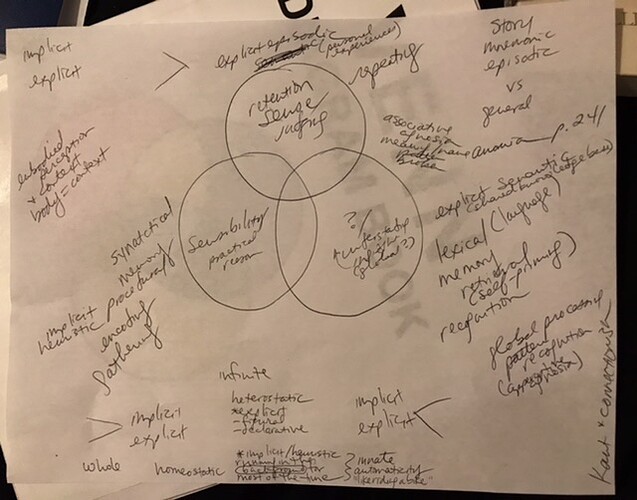 implicit
explicit
>
explicit episodic
(personal
experiences)
repeating
story
mnemonic
episodic
vs
general
retention
sense
judging
associative
agnosia
meaning/name anomia p. 241
embodied
perception
+ context
body = context
explicit semantic
(shared knowledge base)
lexical (language)
memory
retrieval
(self-priming)
recognition
Sensibility
practical
reason
?/
understanding
(global?)
syntactical
memory
implicit
heuristic procedural
encoding
gathering
global processing
pattern
recognition
agnosia)
Kant + connectionism
infinite
heterostatic
*explicit
-figural
-declarative
implicit
explicit
implicit
explicit
whole
homeostatic
*implicit/heuristic
running in the
background for
most of the time
innate
automaticity